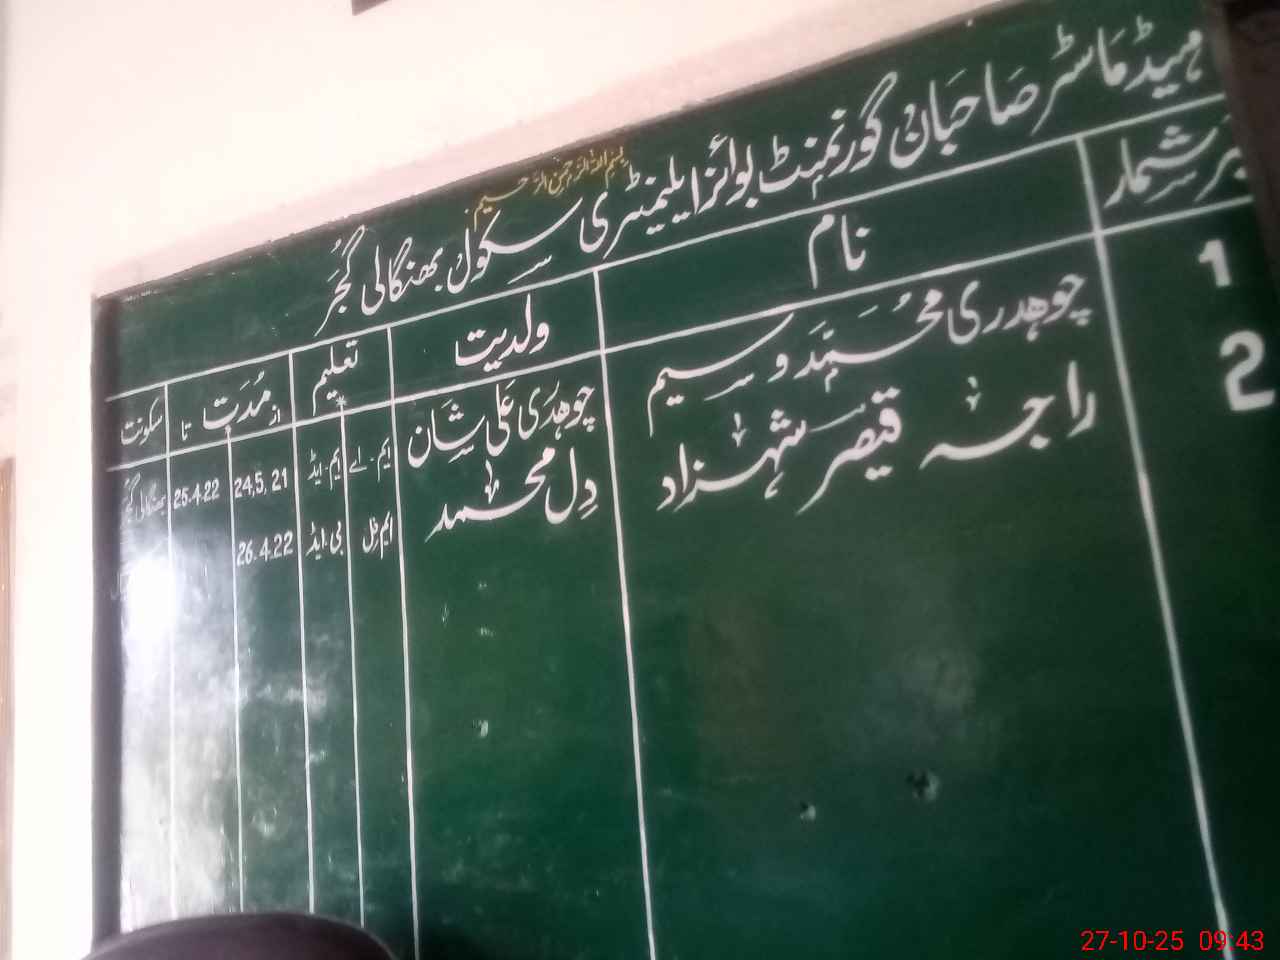 بسم اللہ الرحمن الرحیم
ہیڈ ماسٹر صاحبان گورنمنٹ بوائز ایلیمنٹری سکول بھنگالی گجر
نمبر شمار نام ولدیت تعلیم از مدت تا سکونت
1 چوہدری محمد وسیم چوہدری علی شان ایم-اے ایم-ایڈ 24,5,21 25.4.22 بھنگالی گجر
2 راجہ قیصر شہزاد دل محمد ایم فل بی-ایڈ 26.4.22
27-10-25 09:43